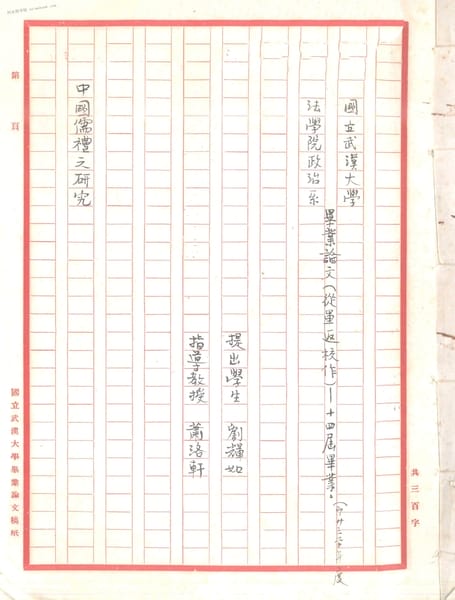 國立武漢大學
法學院政治系
畢業論文（從星返校作）—十四屆畢業。
提出學生 劉輝如
指導教授 蕭洛軒
中國儒禮之研究
共三百字
第 頁
國立武漢大學畢業論文稿紙